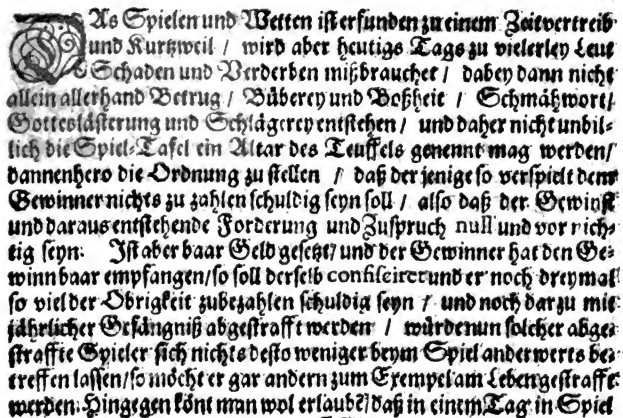 DAs Spielen und Wetten ist erfunden zu einem Zeitvertreib
und Kurtzweil / wird aber heutigs Tags zu vielerley Leut
Schaden und Verderben mißbrauchet / dabey dann nicht
allein allerhand Betrug / Büberey und Boßheit / Schmähwort /
Gotteslästerung und Schlägerey entstehen / und daher nicht unbil-
lich die Spiel-Tafel ein Altar des Teuffels genennt mag werden /
dannenhero die Ordnung zu stellen / daß der jenige so verspielt dem
Gewinner nichts zu zahlen schuldig seyn soll / also daß der Gewinst
und daraus entstehende Forderung und Zuspruch null und vor nich-
tig seyn. Ist aber baar Geld gesetzt / und der Gewinner hat den Ge-
winn baar empfangen / so soll derselb confisciret und er noch dreymal
so viel der Obrigkeit zubezahlen schuldig seyn / und noch darzu mit
jährlicher Gefängniß abgestrafft werden / würde nun solcher abge-
straffte Spieler sich nichts desto weniger beym Spiel anderwerts be-
treffen lassen / so möcht er gar andern zum Exempel am Leben gestrafft
werden. Hingegen könt man wol erlaubē / daß in einem Tag in Spiel